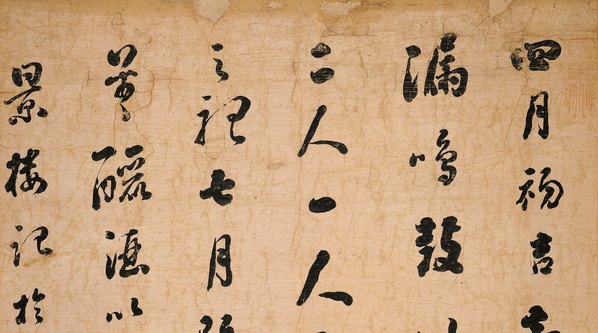 四月初吉
漏鳴鼓
二人一人
之 七月
釃 以
景樓記於